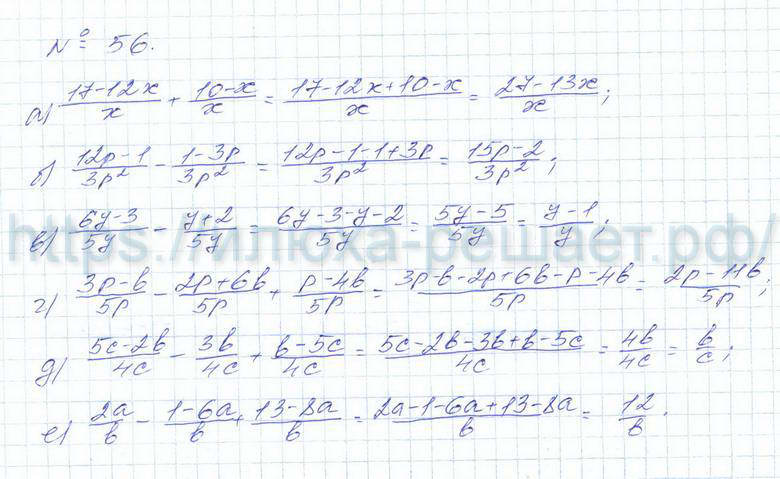 № 56.
а) (17-12x)/x + (10-x)/x = (17-12x+10-x)/x = (27-13x)/x;
б) (12p-1)/3p² - (1-3p)/3p² = (12p-1-1+3p)/3p² = (15p-2)/3p²;
в) (6y-3)/5y - (y+2)/5y = (6y-3-y-2)/5y = (5y-5)/5y = (y-1)/y;
https://илюха-решает.рф/
г) (3p-b)/5p - (2p+6b)/5p + (p-4b)/5p = (3p-b-2p+6b-p-4b)/5p = (2p-11b)/5p;
д) (5c-2b)/4c - 3b/4c + (b-5c)/4c = (5c-2b-3b+b-5c)/4c = 4b/4c = b/c;
е) 2a/b - (1-6a)/b + (13-8a)/b = (2a-1-6a+13-8a)/b = 12/b.